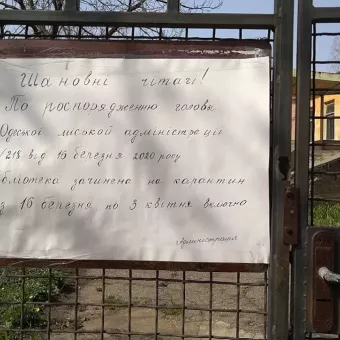 Шановні чітачі!
По роспорядженню голови
Одеської міської адміністрації
/218 від 16 березня 2020 року
бліотека зачинена на карантин
з 16 березня по 3 квітня включно
Адміністрація